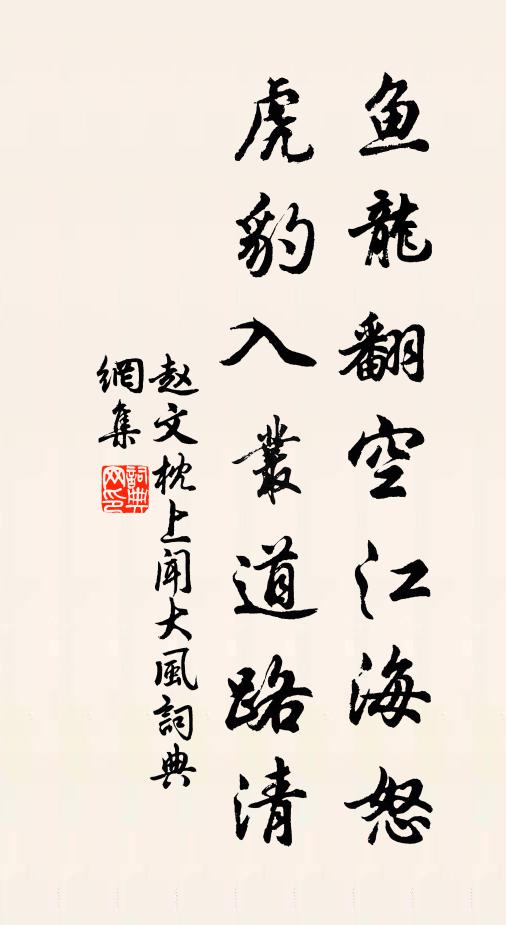 鱼龍翻空江海怒
虎豹入叢道路清
赵文枕上闻大風詞典
網集
詞典
网印